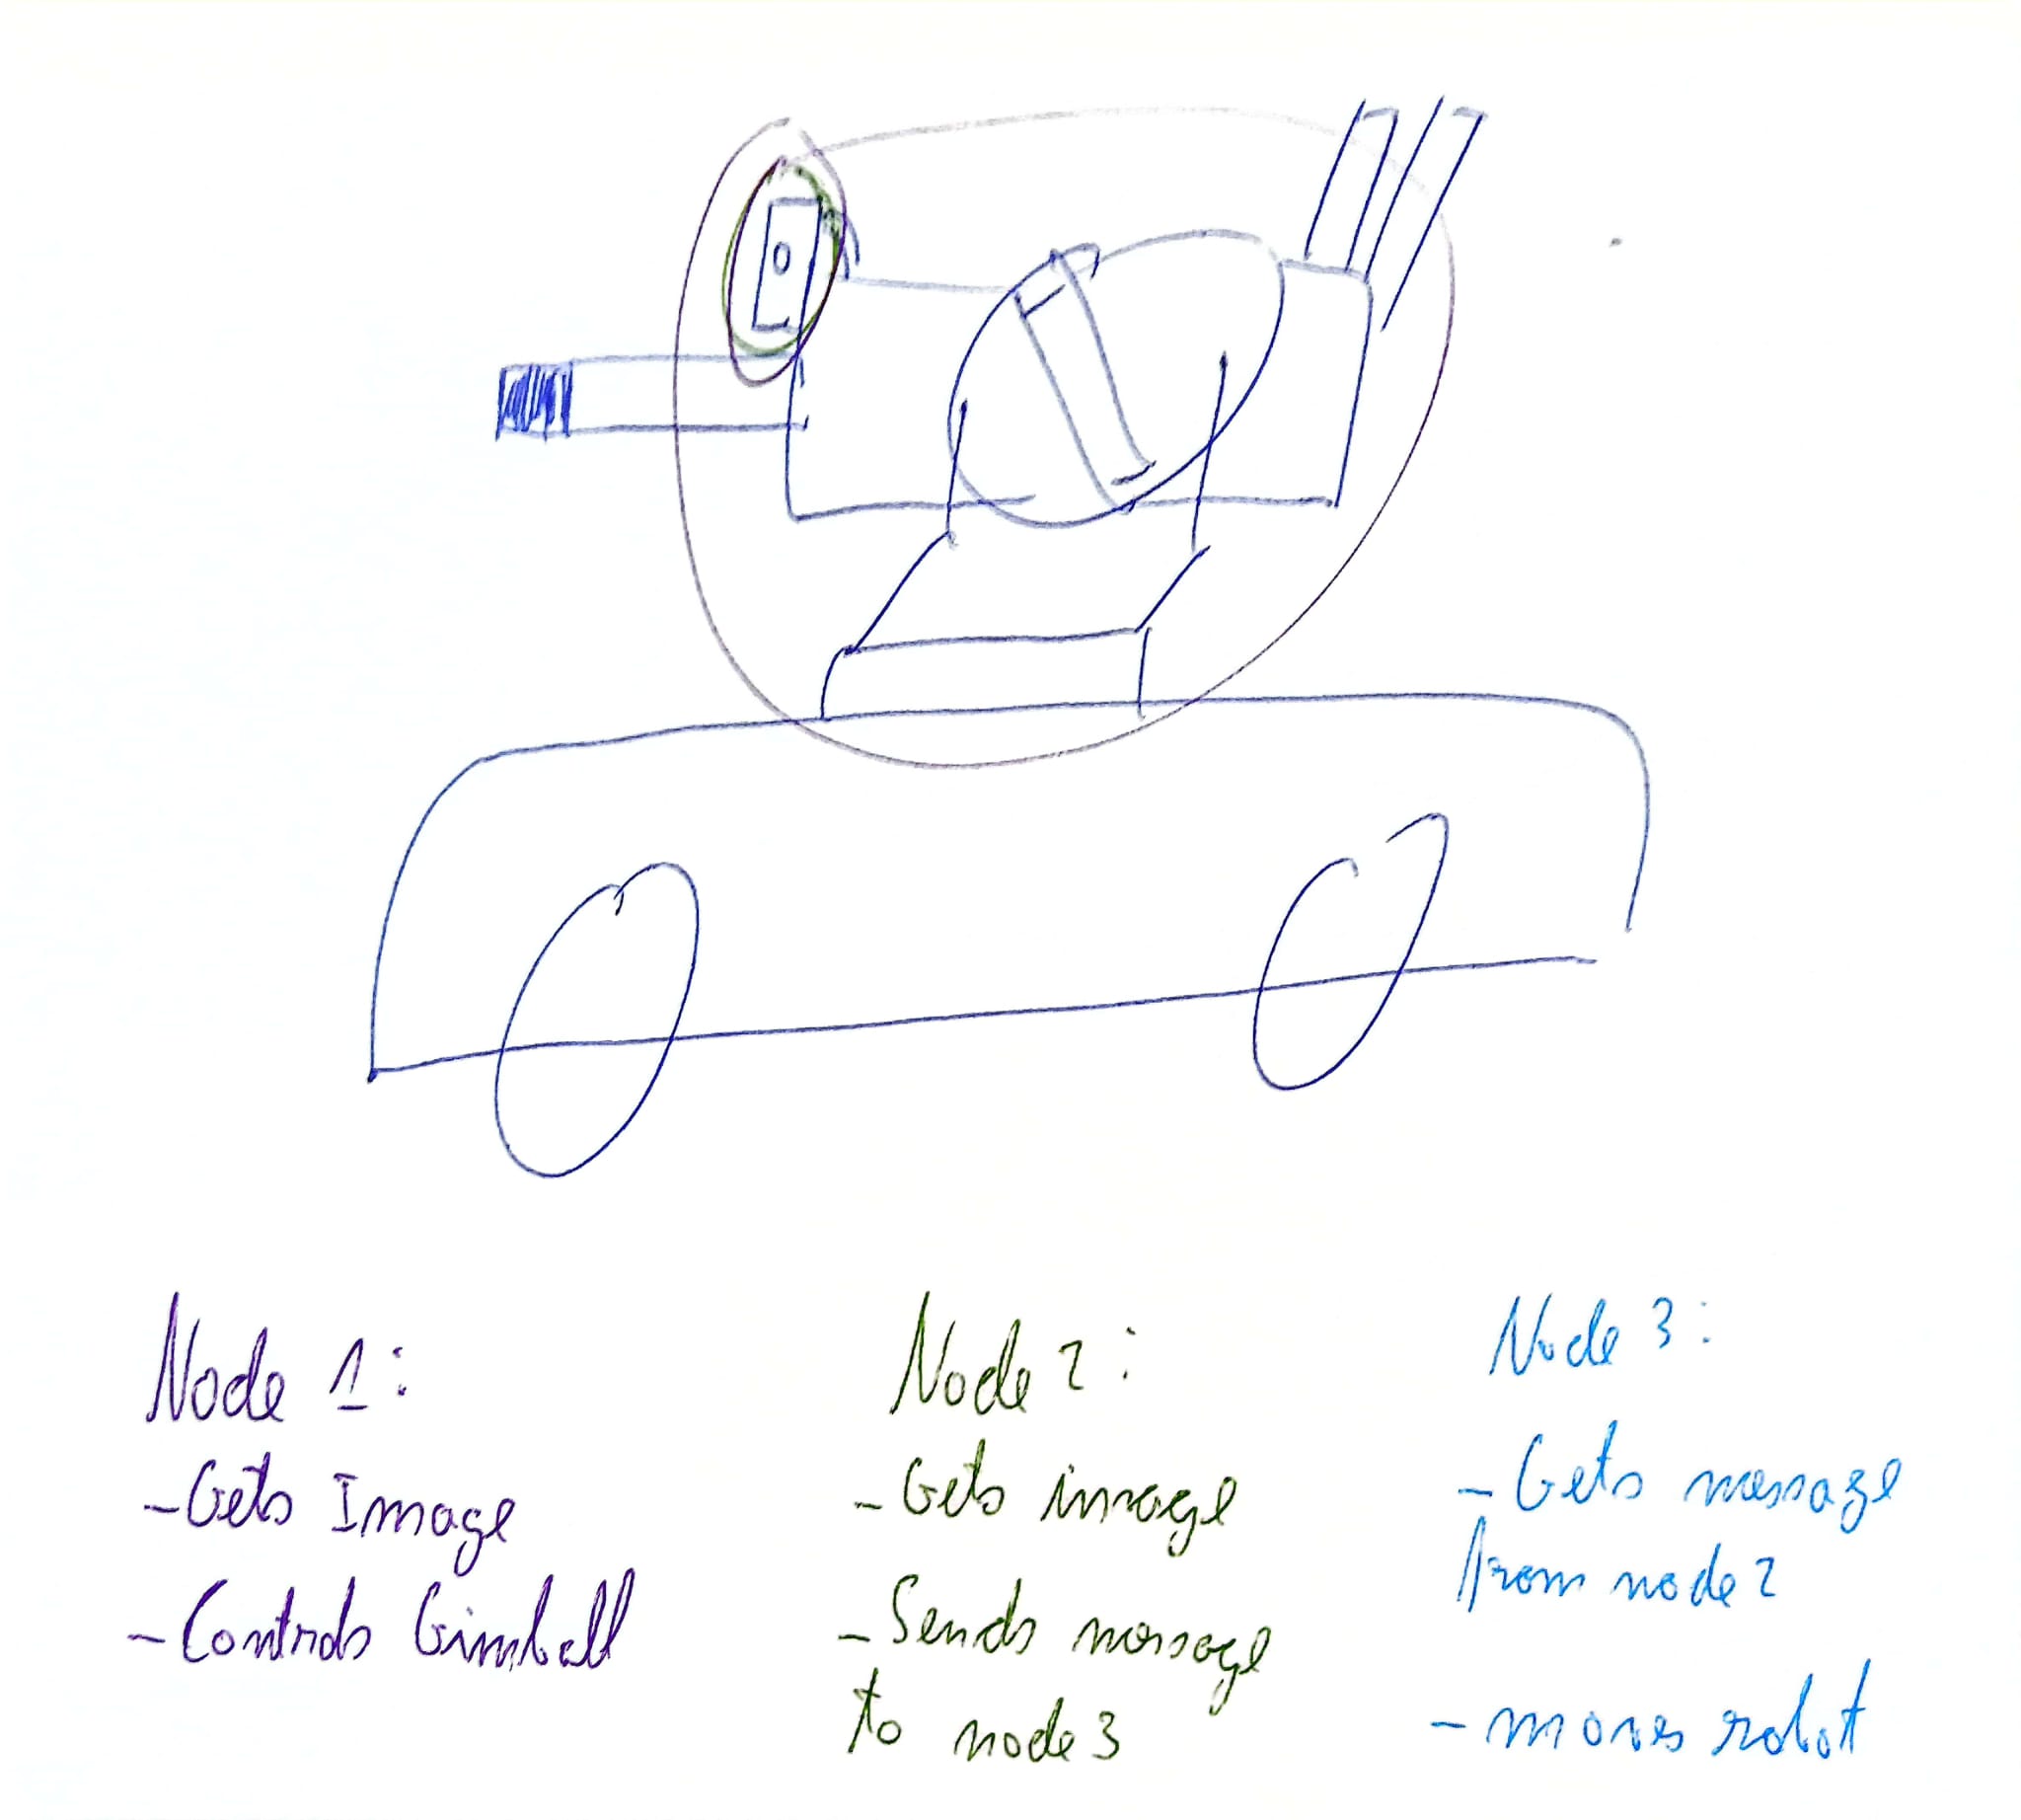 Node 1:
-Gets Image
-Controls Gimball
Node 2:
-Gets image
-Sends message
to node 3
Node 3:
-Gets message
from node 2
-moves robot